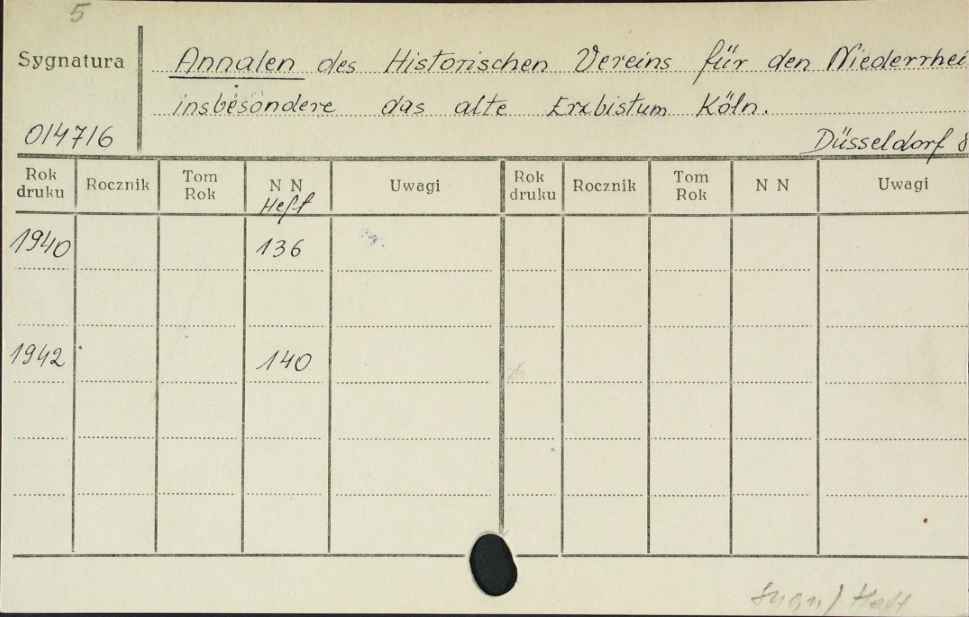 5
Sygnatura
Annalen des Historischen Vereins für den Niederrhei
insbesondere das alte Erzbistum Köln.
014716
Düsseldorf 8
Rok druku Rocznik Tom Rok N N Heft Uwagi Rok druku Rocznik Tom Rok N N Uwagi
1940 136
1942 140
Sygn/ Heft